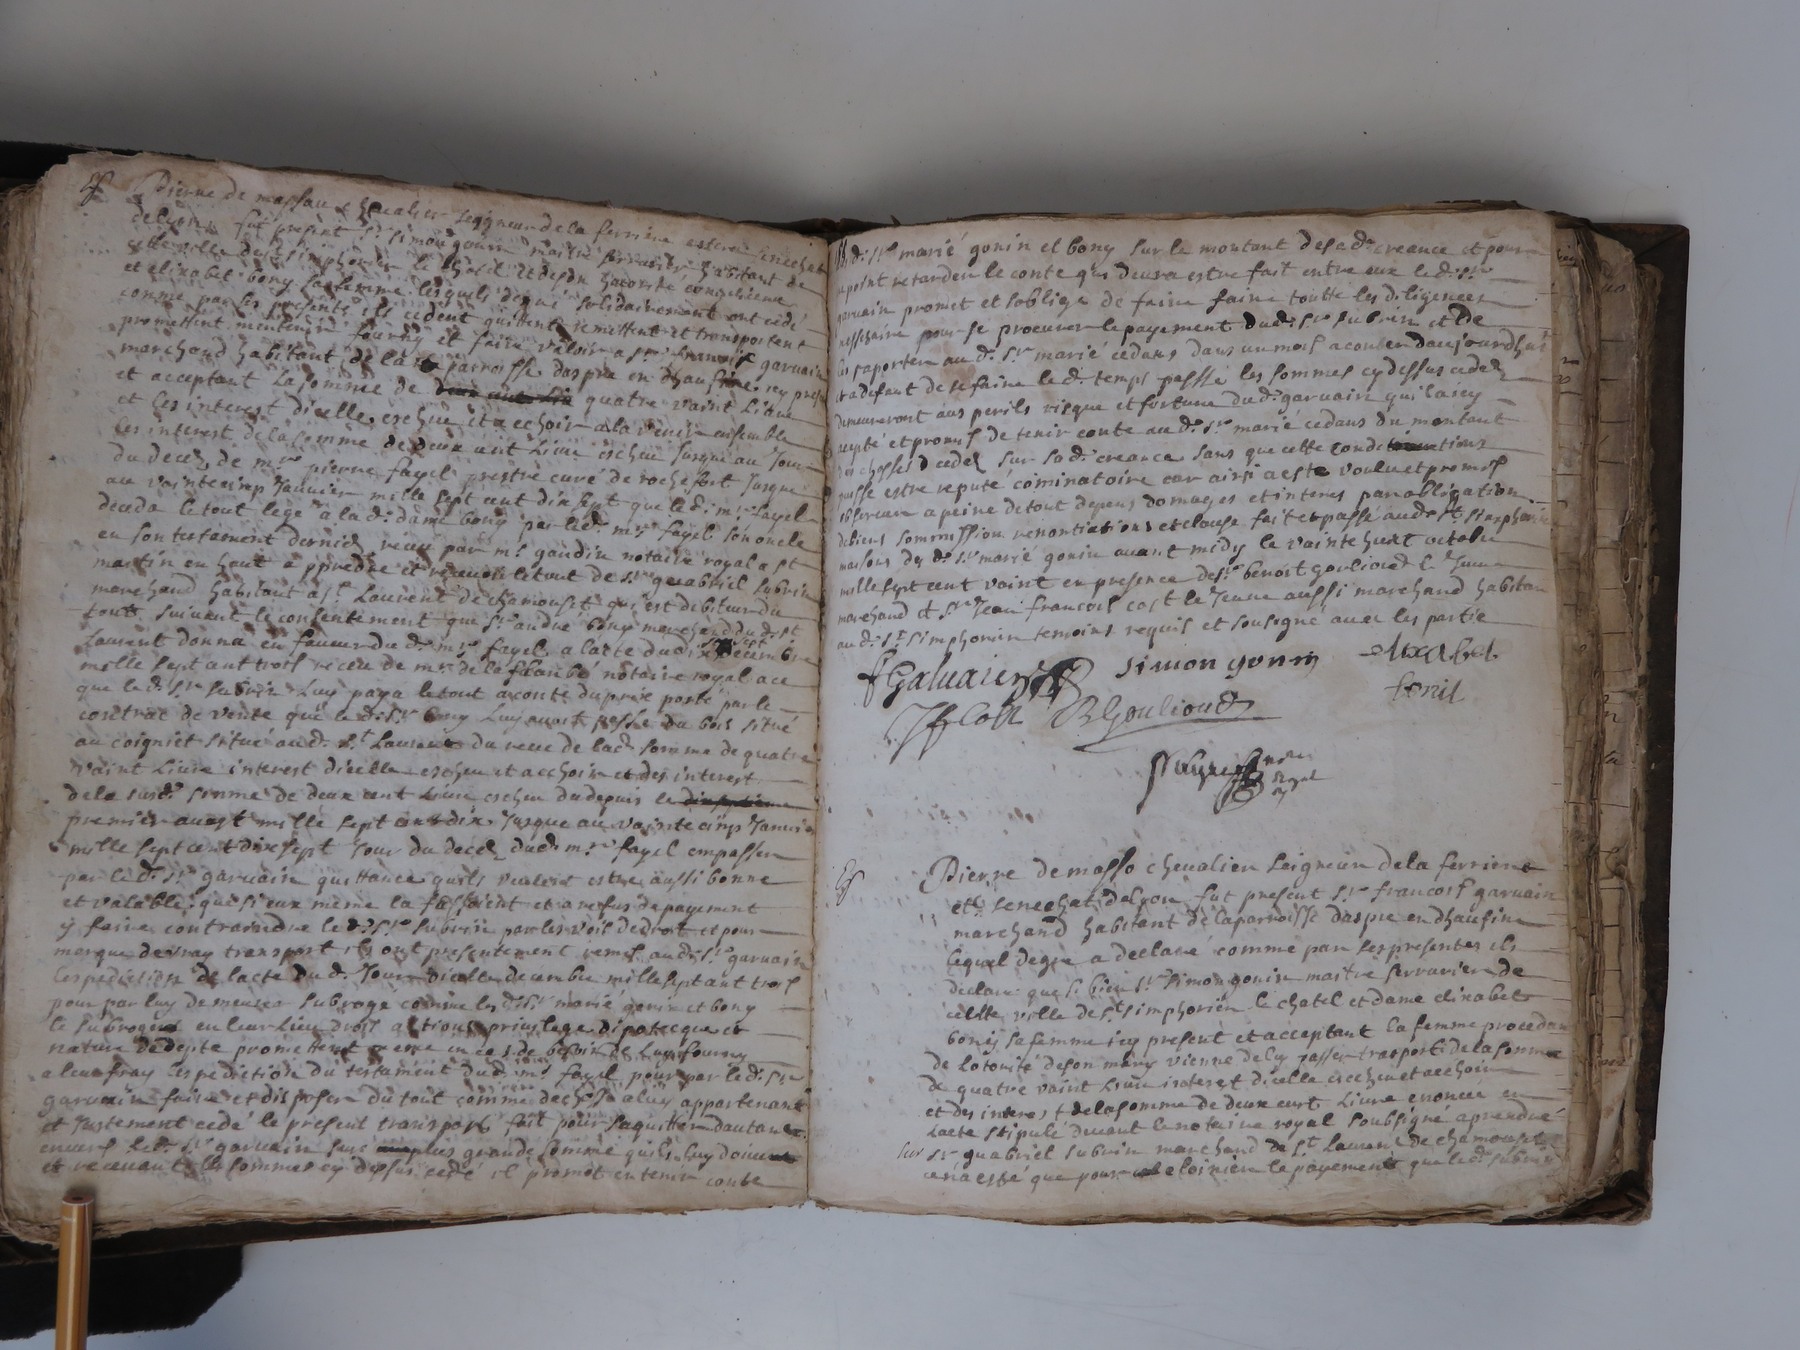 Pierre de massau chevalier seigneur de la ferriere et
de lyon fut present sr simon gonin maitre serrurier habitant de
cette ville de st simphorien le chatel et de son hautorite
et elizabet bony sa femme lesquels de gré solidairement ont cedé
comme par ses presents ils cedent quittent remettent et transportent
promettent maintenir fournir et faire valoir a sr francois garuain
marchand habitant de la parroisse daspre en dhaufine icy present
et acceptant la somme de quatre vaint Livre
et les interest dicelle escheu et a echoir a la venir ensemble
les interest de la somme de deux cent Livre escheu jusque au jour
du deces de mre pierre fayel prestre curé de rochefort jusque
au vaintecinq Janvier mille sept cent dix sept que le d. mre fayel
deceda le tout legé a la d. dame bony par le d. mre fayel son oncle
en son testament dernier receu par me gaudin notaire royal a st
martin en haut a prendre et recevoir le tout de sr guabriel subrin
marchand habitant a st Laurent de chamouset qui est debiteur du
tout suivant le consentement que sr andré bony marchand du d. st
Laurent donna en faveur du d. mre fayel a lacte du dix sept decembre
mille sept cent trois receu de me de la flaubé notaire royal a ce
que le d. sr subrin Luy paya le tout a conte du prix porté par le
contrat de vente que le d. sr bony Luy avoit passé du bois situé
au coigniet situé au d. st Laurent du reve de lad. somme de quatre
vaint Livre interest dicelle escheu et acchoir et des interest
de la susd. somme de deux cent Livre escheu du depuis le
premier aougt mille sept cent dix Jusque au vaintecinq Janvier
mille sept cent dix sept Jour du deces dud. mre fayel en passer
par le d. sr garuain quittance quils veulent estre aussi bonne
et valable que si eux mème la fassoient et a refus de payement
y faire contraindre le d. sr subrin par les vois de droit et pour
marque de vray transport ils ont presentement remis au d. sr garuain
lexpedition de lacte du d. Jour dicelle decembre mille sept cent trois
pour par luy demeurer subrogé comme les d. sr marié gonin et bony
le subrogent en leur Lieu droit actions privilege dipotecque et
nature de depte promettent en cas de besoin de Luy fournir
a leur fray lexpedictiō du testament dud. mre fayel pour par le d. sr
garuain faire et disposer du tout comme de chose a luy appartenant
et Justement cedé le present transport fait pour saquitter dautant
envers le d. sr garuain sur plus grande somme quils luy doivent
et recevant les sommes cy dessus cedé il promet en tenir conte
aud. sr marié gonin et bony sur le montant de sad. creance et pour
ne point retarder le conte qui devra estre fait entre eux le d. sr
garuain promet et soblige de faire faire toutte les diligences
nessesaire pour se procurer le payement dud. sr subrin et de
les raporter au d. sr marié cedans dans un mois a conter daujourdhuit
et a defaut de se faire le d. temps passé les sommes cy dessus cedé
demeureront aus perils risque et fortune du d. garuain qui la icy
accepté et promis de tenir conte au d. sr marié cedans du montant
des choses cedés sur sa d. creance sans que cette conditions
puisse estre reputé cominatoire car ainsi a esté voulu et promis
observer a peine de tout depens domages et interes par obligation
de biens sommission renontiations et clause fait et passé au d. st simphorien
maison du d. sr marié gonin avant midy le vaintehuit octobre
mille sept cent vaint en presence de sr benoit gouliond le Jeune
marchand et sr Jean francois cost le Jeune aussi marchand habitan
au d. st simphorien temoins requis et sousigné avec les partie
f Galuaien simon gonin elixabet
Jfcost BGouliond bonit
nore
royal
Pierre de masso chevalier seigneur de la ferriere
et senechat de lyon fut present sr francois garuain
marchand habitant de la parroisse daspre en dhaufine
lequel de gré a declaré comme par ses presentes ils
declare que si bien sr simon gonin maitre serrurier de
cette ville de st simphorien le chatel et dame elizabet
bony sa femme icy present et acceptant la femme procedan
de lotorité de son mary vienne de luy passer trasport de la somme
de quatre vaint Livre interest dicelle escheu et acchoir
et des interest de la somme de deux cent Livre enoncée en
lacte stipulé devant le notaire royal soubsigné a prendre
sur sr guabriel subrin marchand de st Laurent de chamouset
ce na esté que pour eloinier le payement que le d. subrin